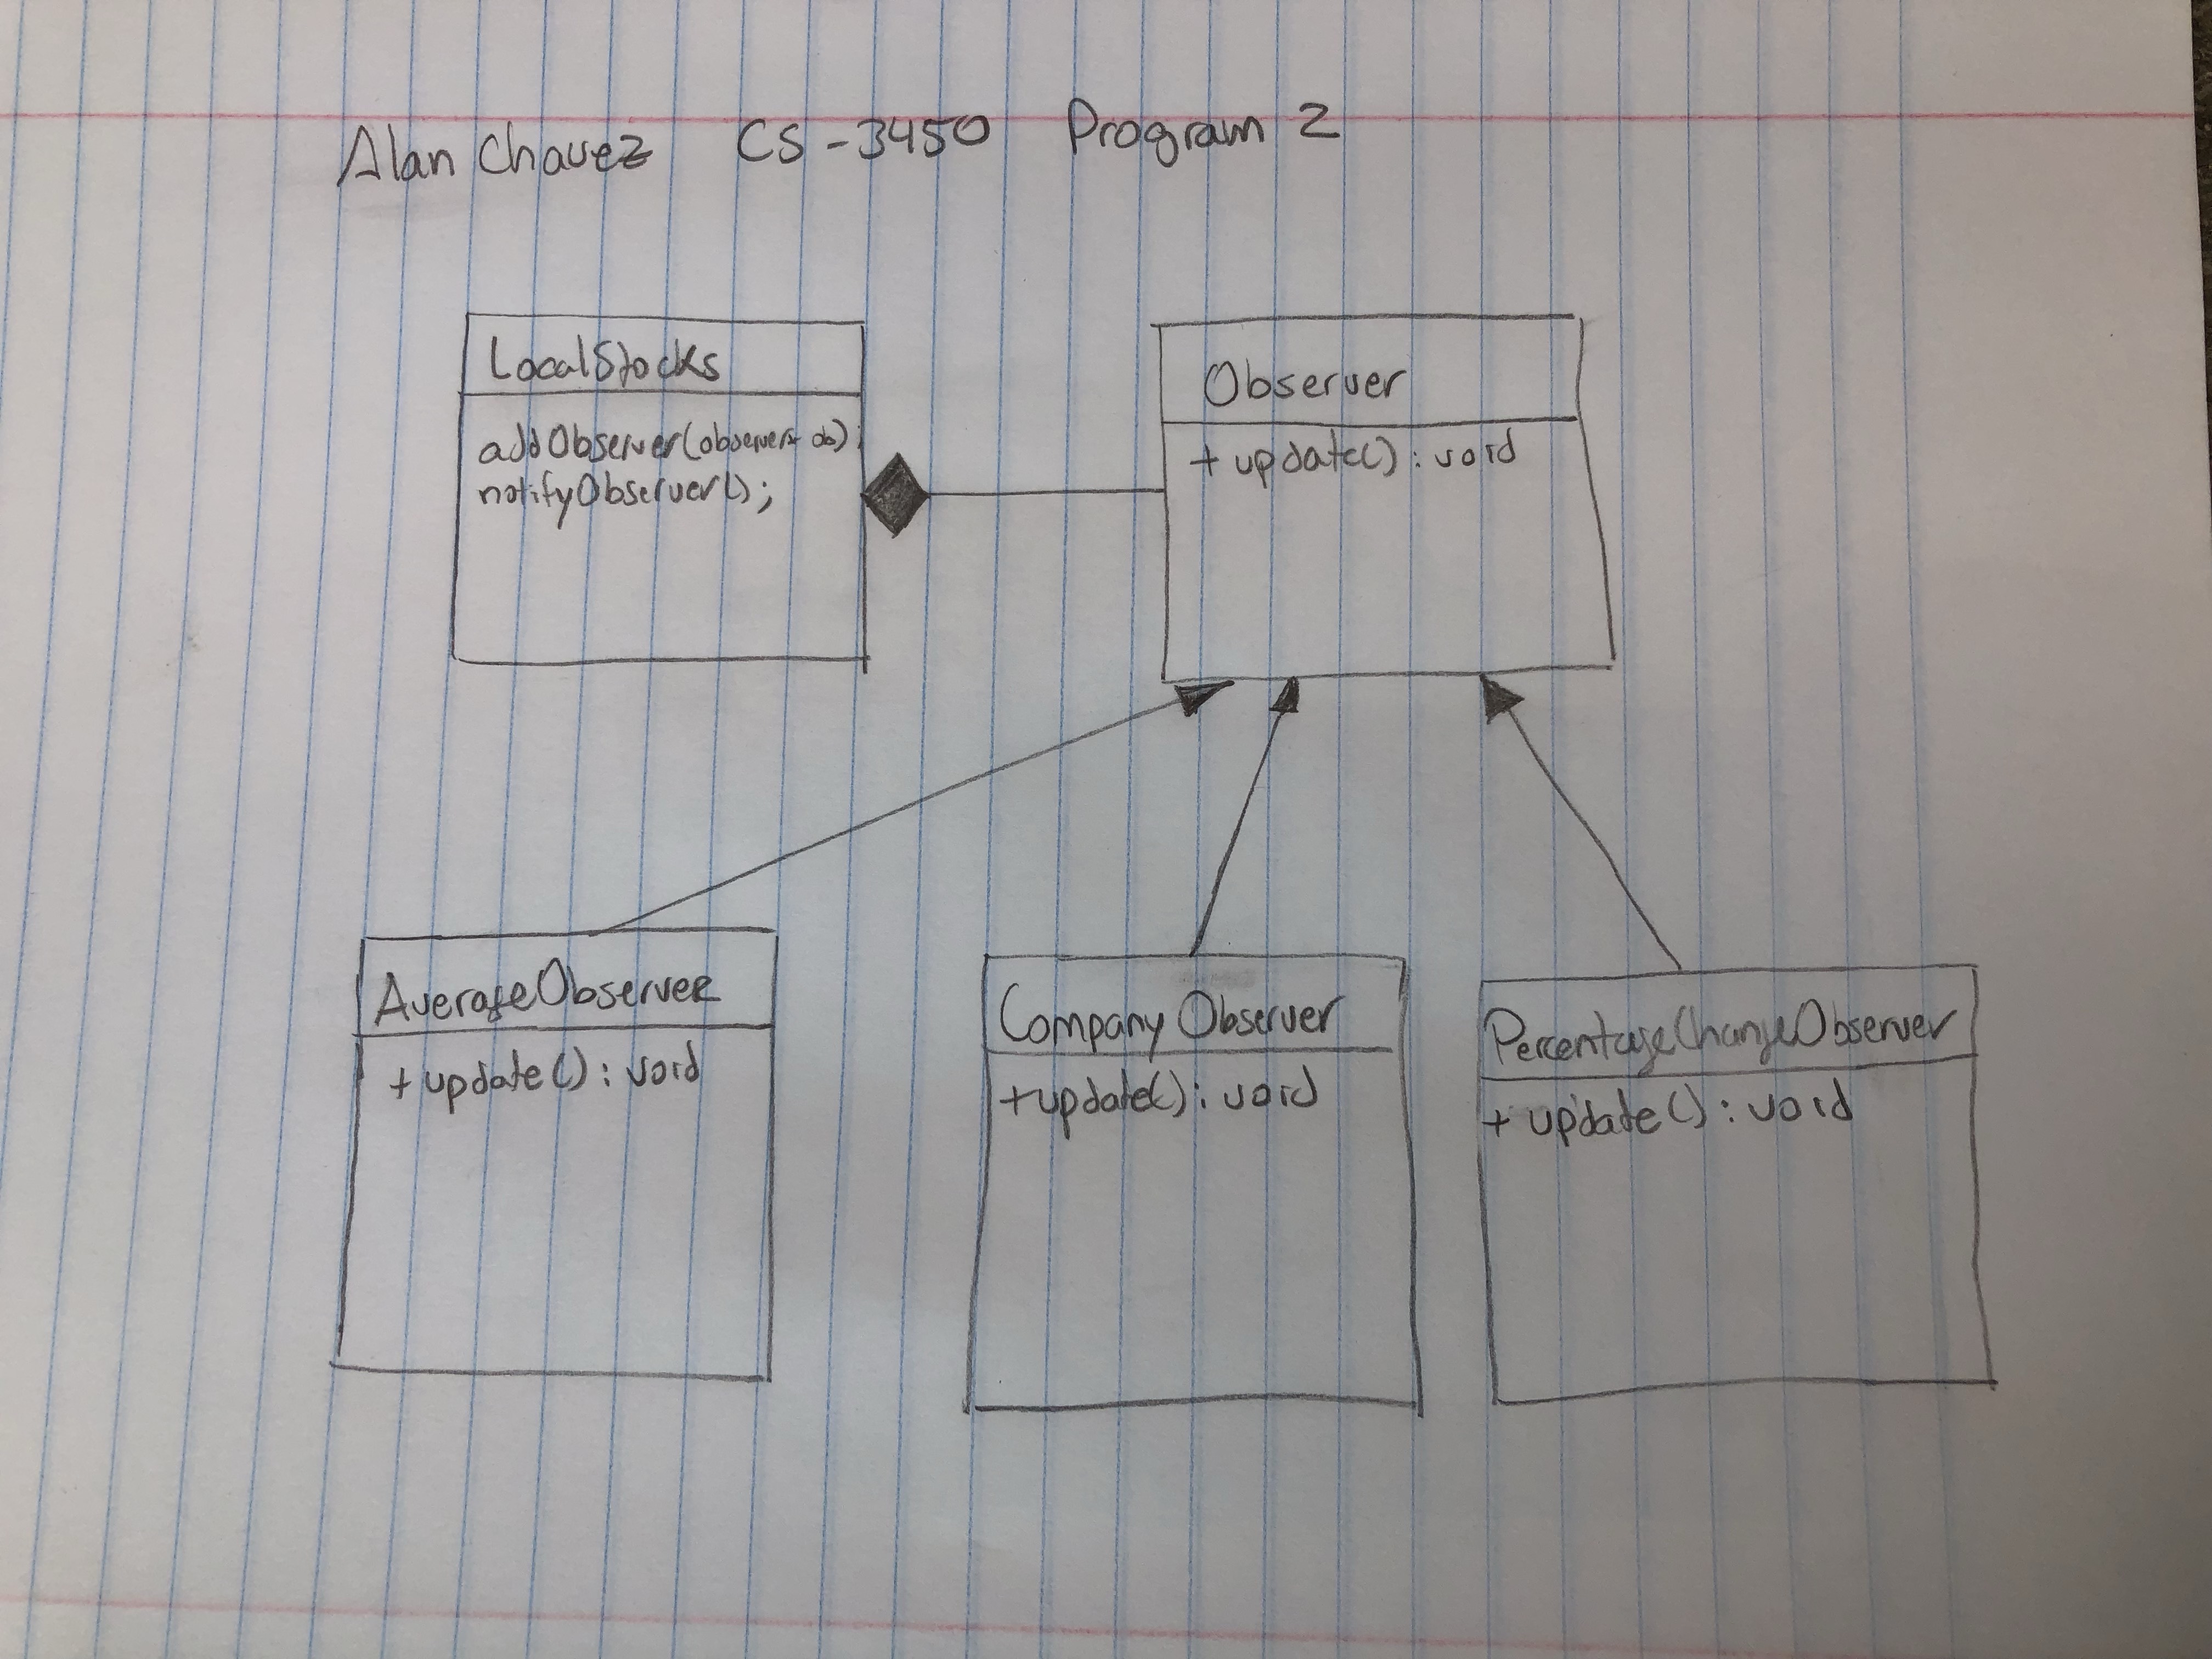 Alan Chavez CS-3450 Program 2
LocalStocks
addObserver(observer* ob);
notifyObserver();
Observer
+ update() : void
AverageObserver
+ update() : void
Company Observer
+ update() : void
PercentageChangeObserver
+ update() : void